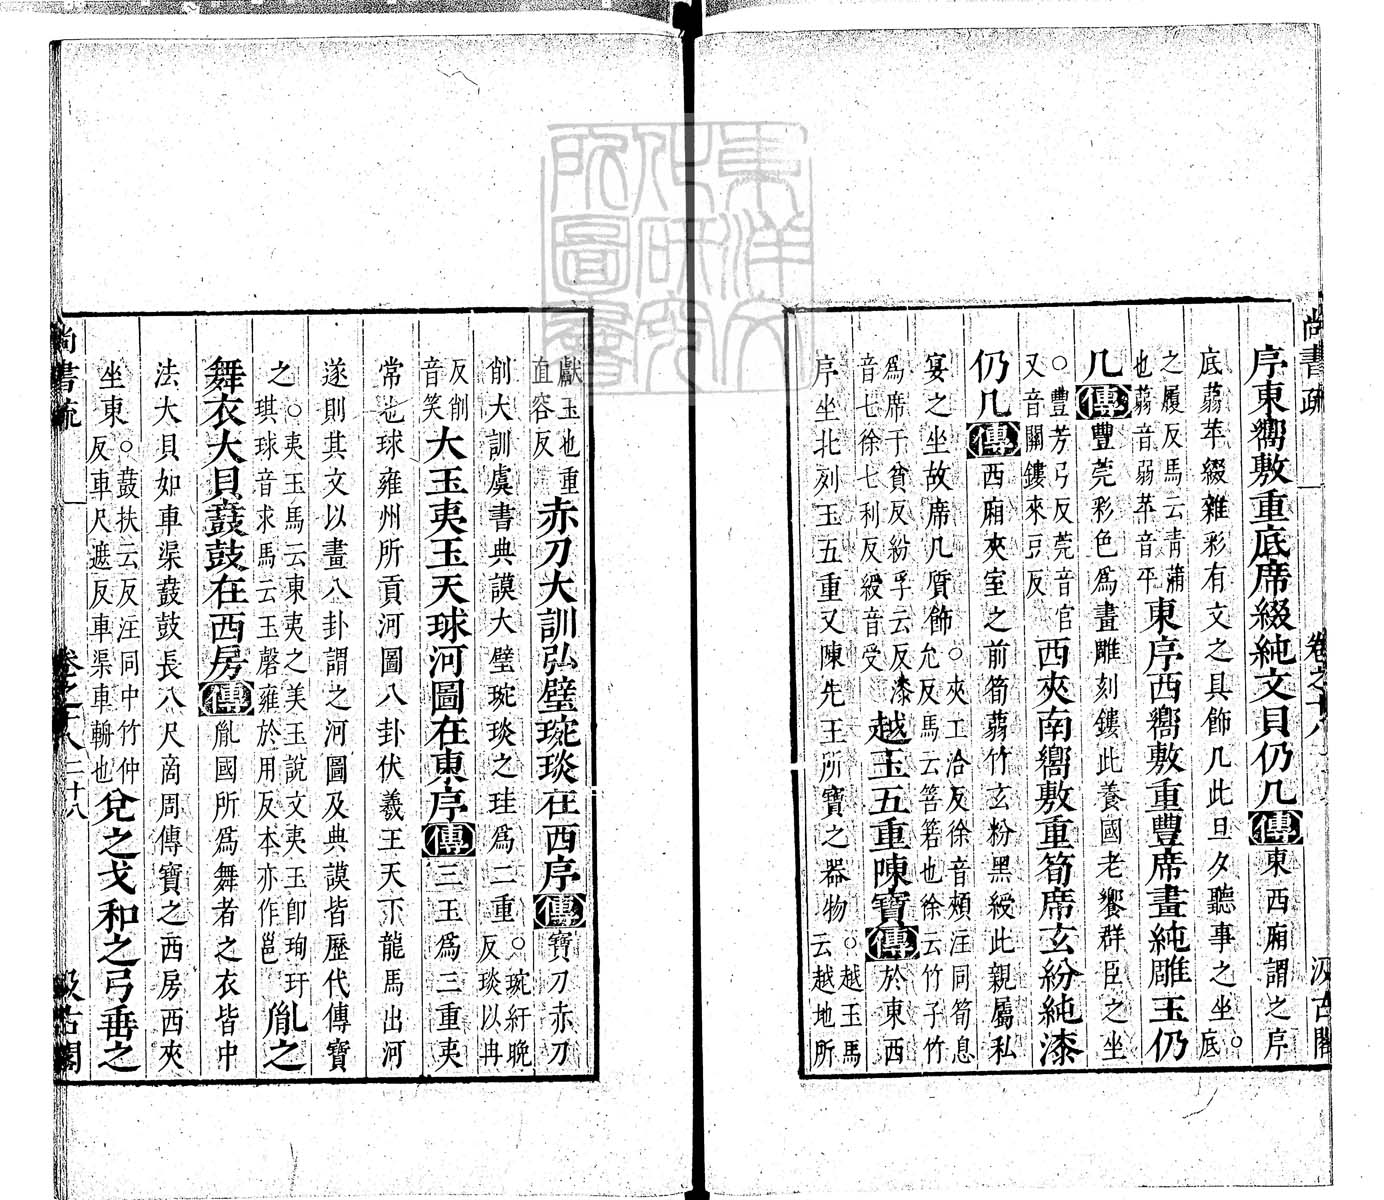 尚書疏 卷之十八 汲古閣
序東嚮敷重底席綴純文貝仍几傳東西廂謂之序
底蒻苹綴雜彩有文之具飾几此旦夕聽事之坐○底
之履反馬云青蒲
也蒻音弱苹音平
東序西嚮敷重豐席畫純雕玉仍
几傳豐莞彩色爲畫雕刻鏤此養國老饗群臣之坐
○豐芳弓反莞音官
又音關鏤來豆反
西夾南嚮敷重筍席玄紛純漆
仍几傳西廂夾室之前筍蒻竹玄粉黑綬此親屬私
宴之坐故席几質飾
○夾工洽反徐音頰注同筍息
允反馬云箁箬也徐云竹子竹
爲席于貧反紛孚云反漆
音七徐七利反綬音受
越玉五重陳寶傳於東西
序坐北列玉五重又陳先王所寶之器物
○越玉馬
云越地所
獻玉也重
直容反
赤刀大訓弘璧琬琰在西序傳寶刀赤刀
削大訓虞書典謨大璧琬琰之珪爲二重
○琬紆晚
反琰以冉
反削
音笑
大玉夷玉天球河圖在東序傳三玉爲三重夷
常也球雍州所貢河圖八卦伏羲王天下龍馬出河
遂則其文以畫八卦謂之河圖及典謨皆歷代傳寶
之
○夷玉馬云東夷之美玉說文夷玉卽珣玗
琪球音求馬云玉磬雍於用反本亦作邕
胤之
舞衣大貝鼖鼓在西房傳胤國所爲舞者之衣皆中
法大貝如車渠鼖鼓長八尺商周傳寶之西房西夾
坐東
○鼖扶云反注同中竹仲
反車尺遮反車渠車輞也
兌之戈和之弓垂之
尚書疏 卷之十八 二十八 汲古閣